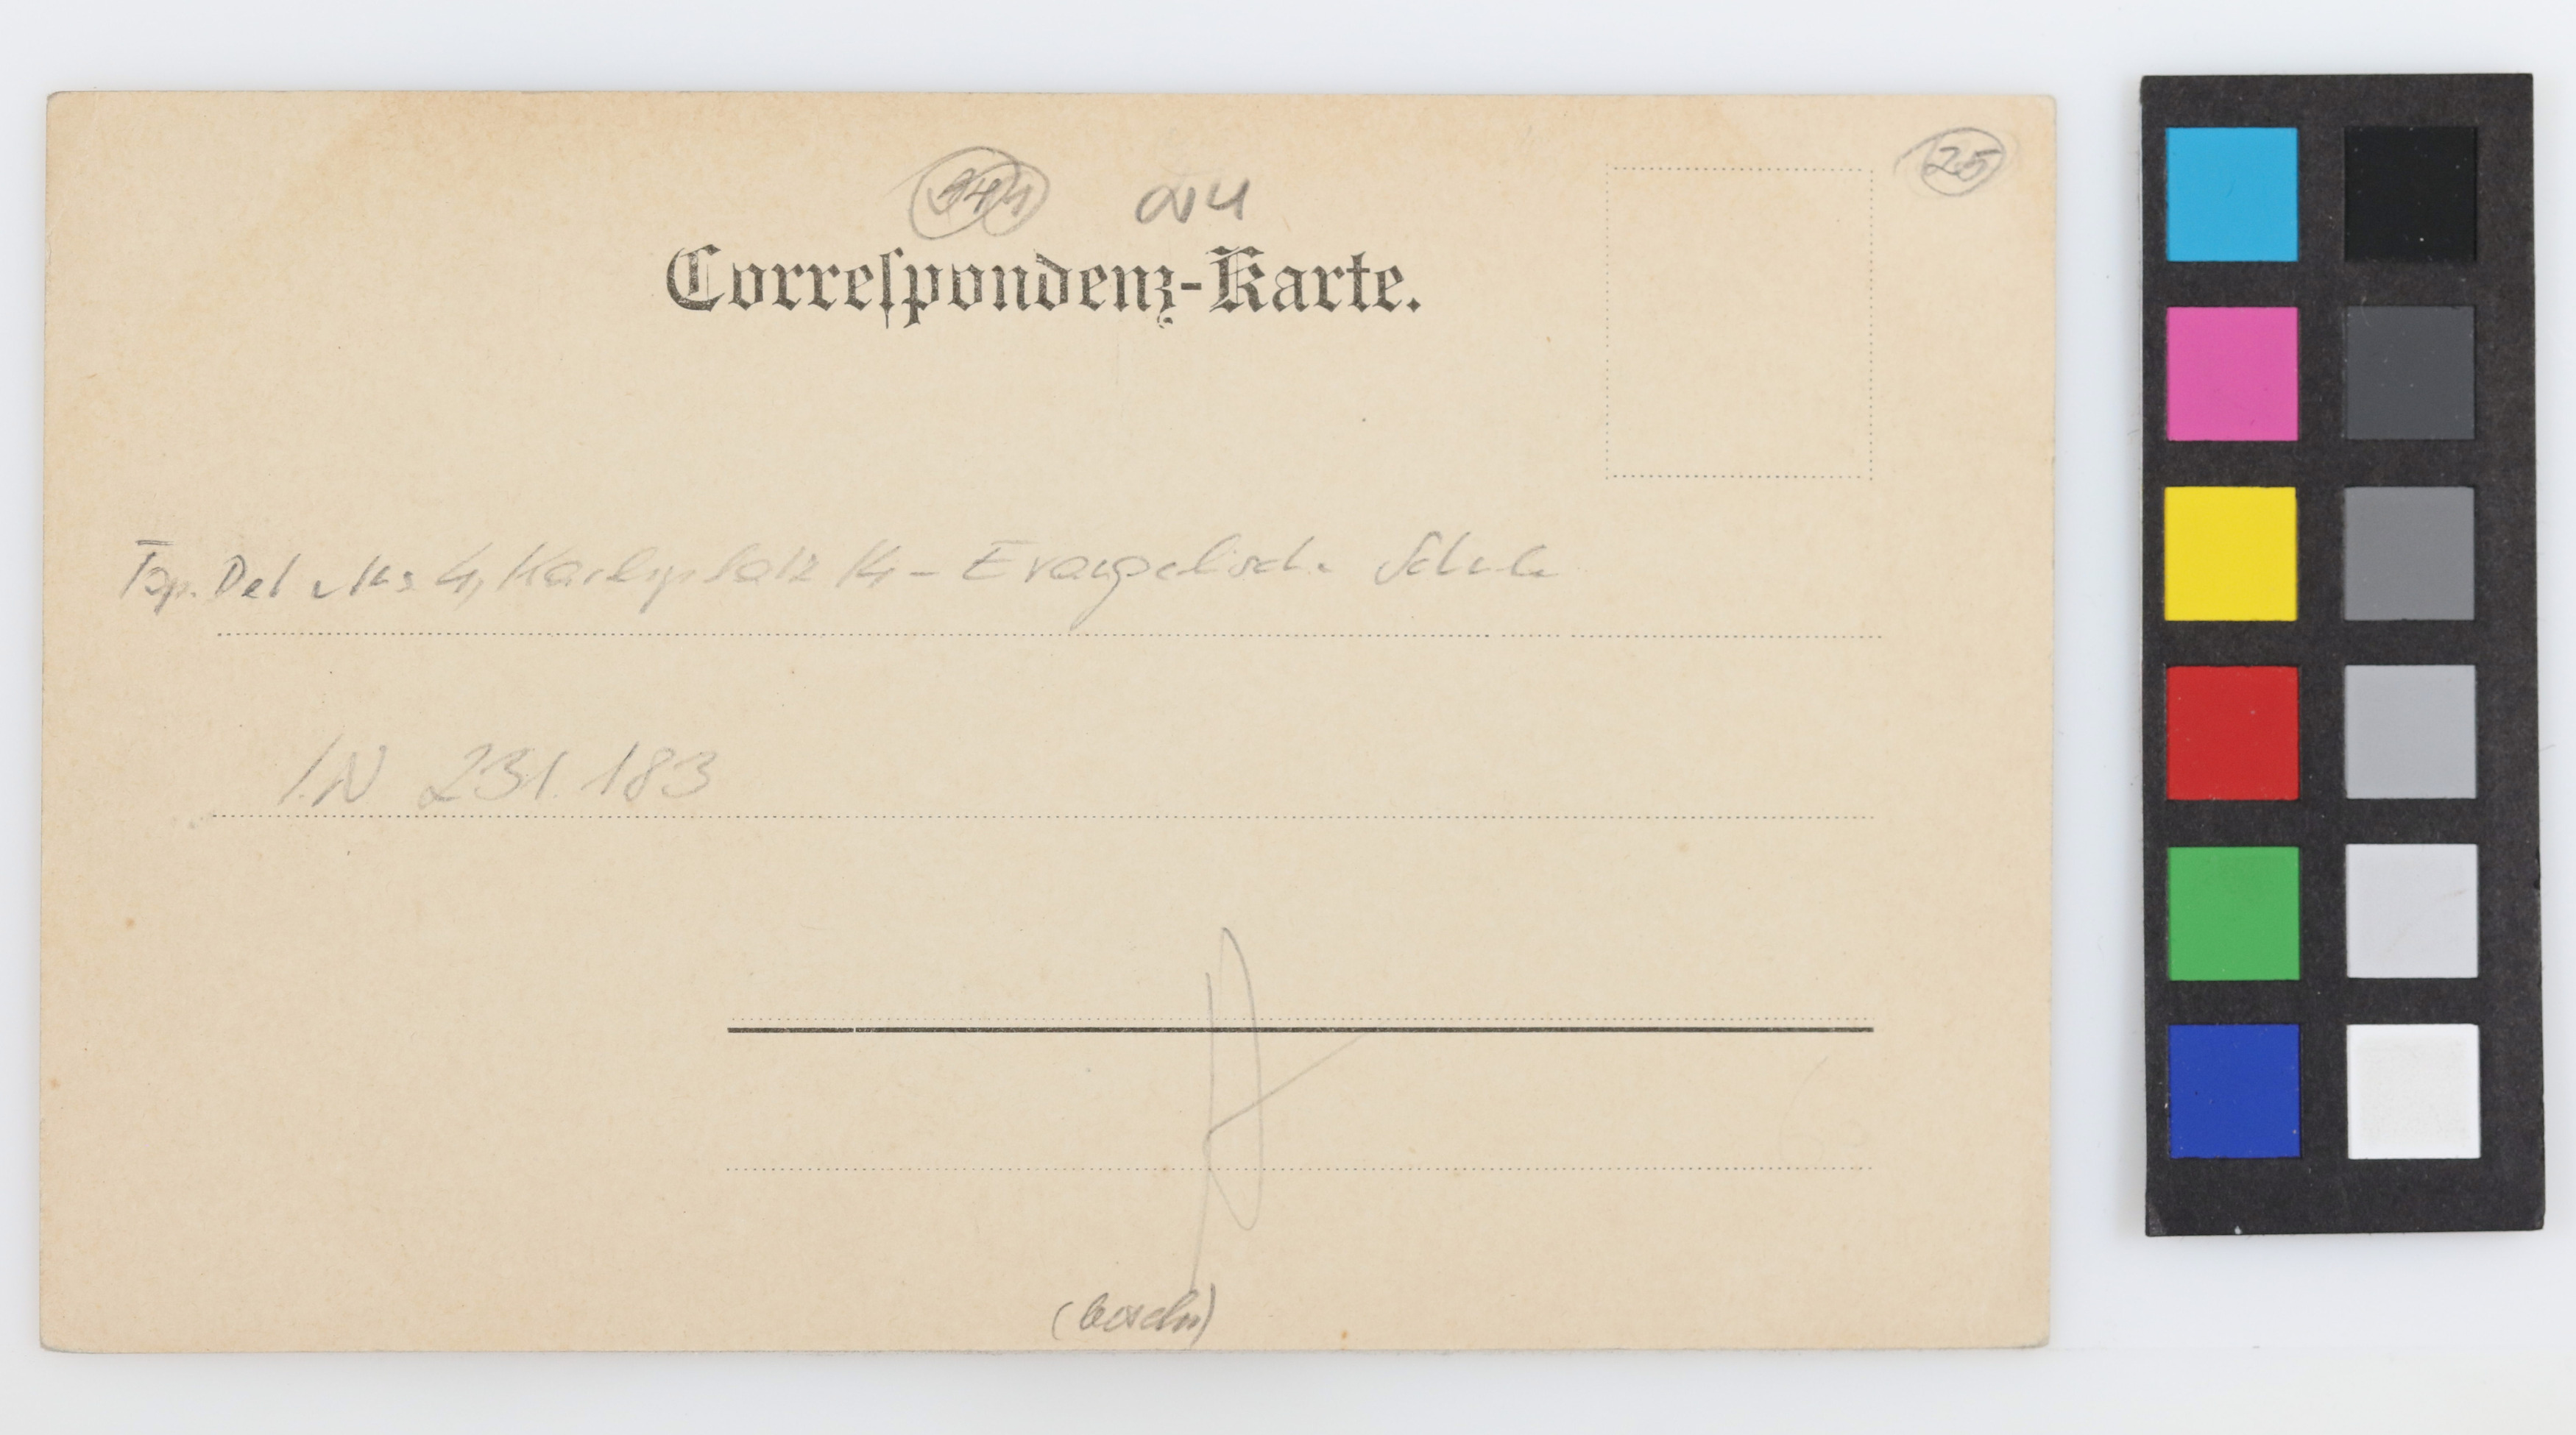 25
Correſpondenz-Karte.
Top. Del 4, Karlsplatz 14 - Evangelische Schule
I.N 231.183